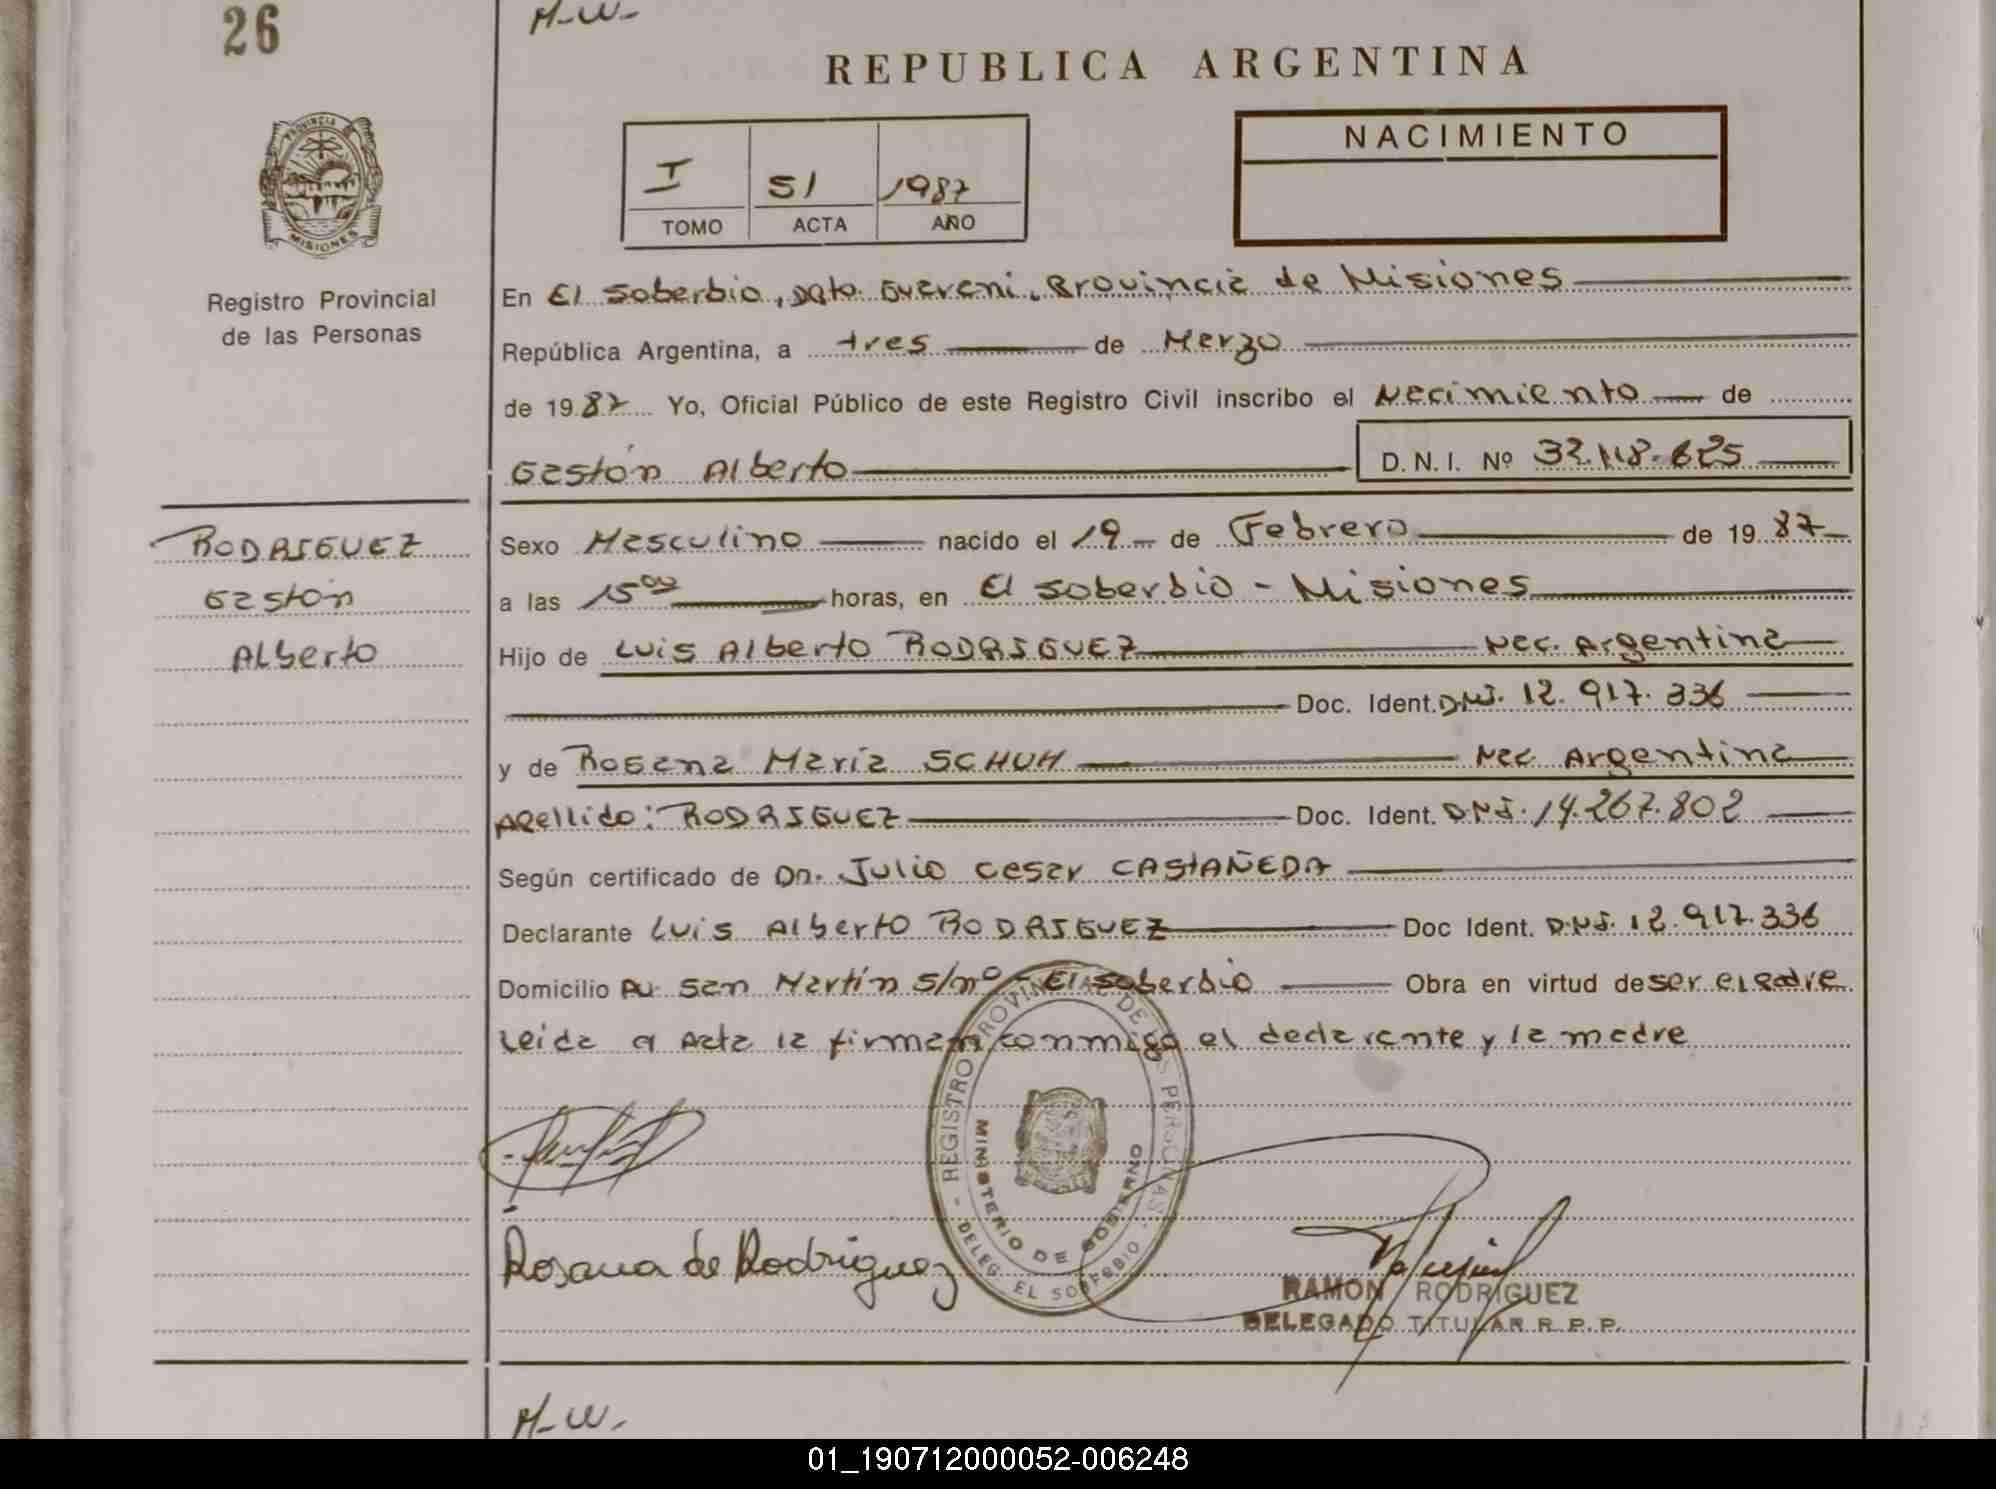 26
M-W-
REPUBLICA ARGENTINA
PROVINCIA DE
MISIONES
Registro Provincial
de las Personas
I 51 1987
TOMO ACTA AÑO
NACIMIENTO
En El Soberbio, Dpto. Guarani, Provincia de Misiones
República Argentina, a tres de Marzo
de 1987 Yo, Oficial Público de este Registro Civil inscribo el Nacimiento de
Gastón Alberto D. N. I. Nº 32.118.625
RODRIGUEZ
Gastón
Alberto
Sexo Masculino nacido el 19 de Febrero de 1987
a las 15⁰⁰ horas, en El Soberbio - Misiones
Hijo de Luis Alberto RODRIGUEZ Nac. Argentina
Doc. Ident. DNI. 12.917.336
y de Rosana María SCHUH Nac. Argentina
Apellido: RODRIGUEZ Doc. Ident. DNI. 14.267.802
Según certificado de Dn. Julio Cesar CASTAÑEDA
Declarante Luis Alberto RODRIGUEZ Doc Ident. DNI. 12.917.336
Domicilio Av. San Martín S/nº - El Soberbio Obra en virtud de ser el padre
Leida el Acta la firman conmigo el declarante y la madre
REGISTRO PROVINCIAL DE LAS PERSONAS
MINISTERIO DE GOBIERNO
- DELEG. EL SOBERBIO -
Rosana de Rodriguez
RAMON RODRIGUEZ
DELEGADO TITULAR R.P.P.
M-W-
01_190712000052-006248